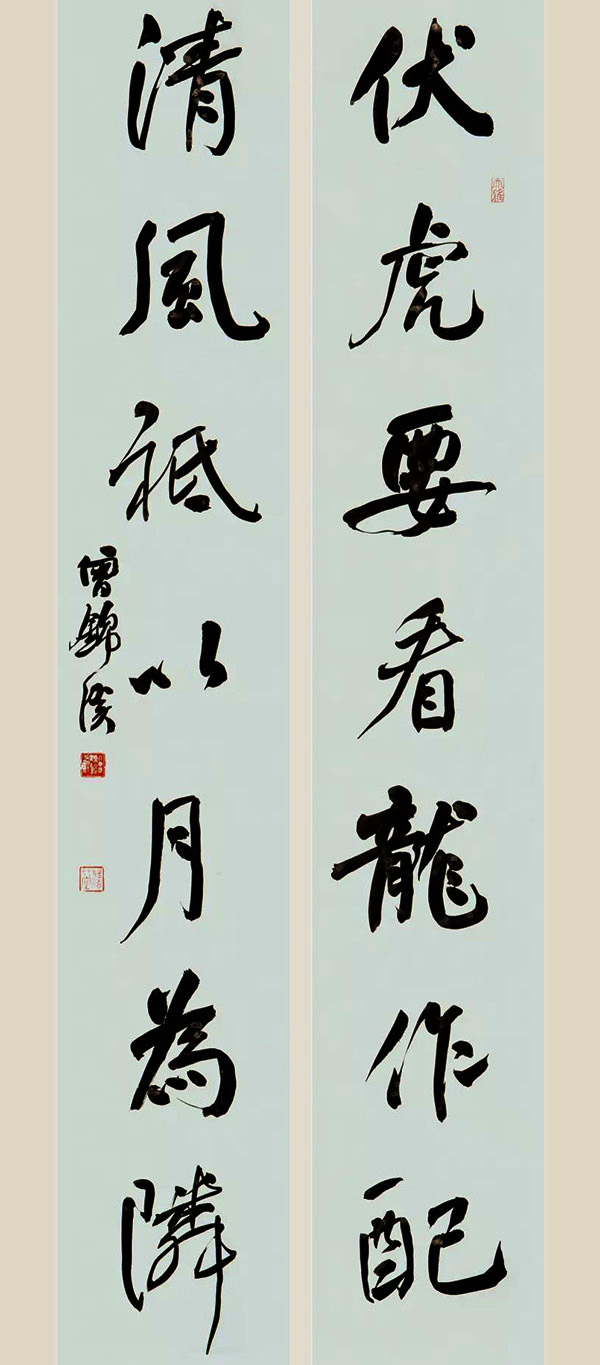 伏虎要看龍作配
清風祗以月為隣
曾錦溪